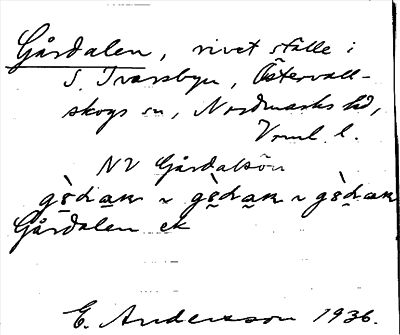 Gårdalen, rivet ställe i
S. Ivarsbyn, Östervall-
skogs sn, Nordmarks hd,
Vrml. l.
NV Gårdatsön
Gårdalen ek
E. Andersson 1936.